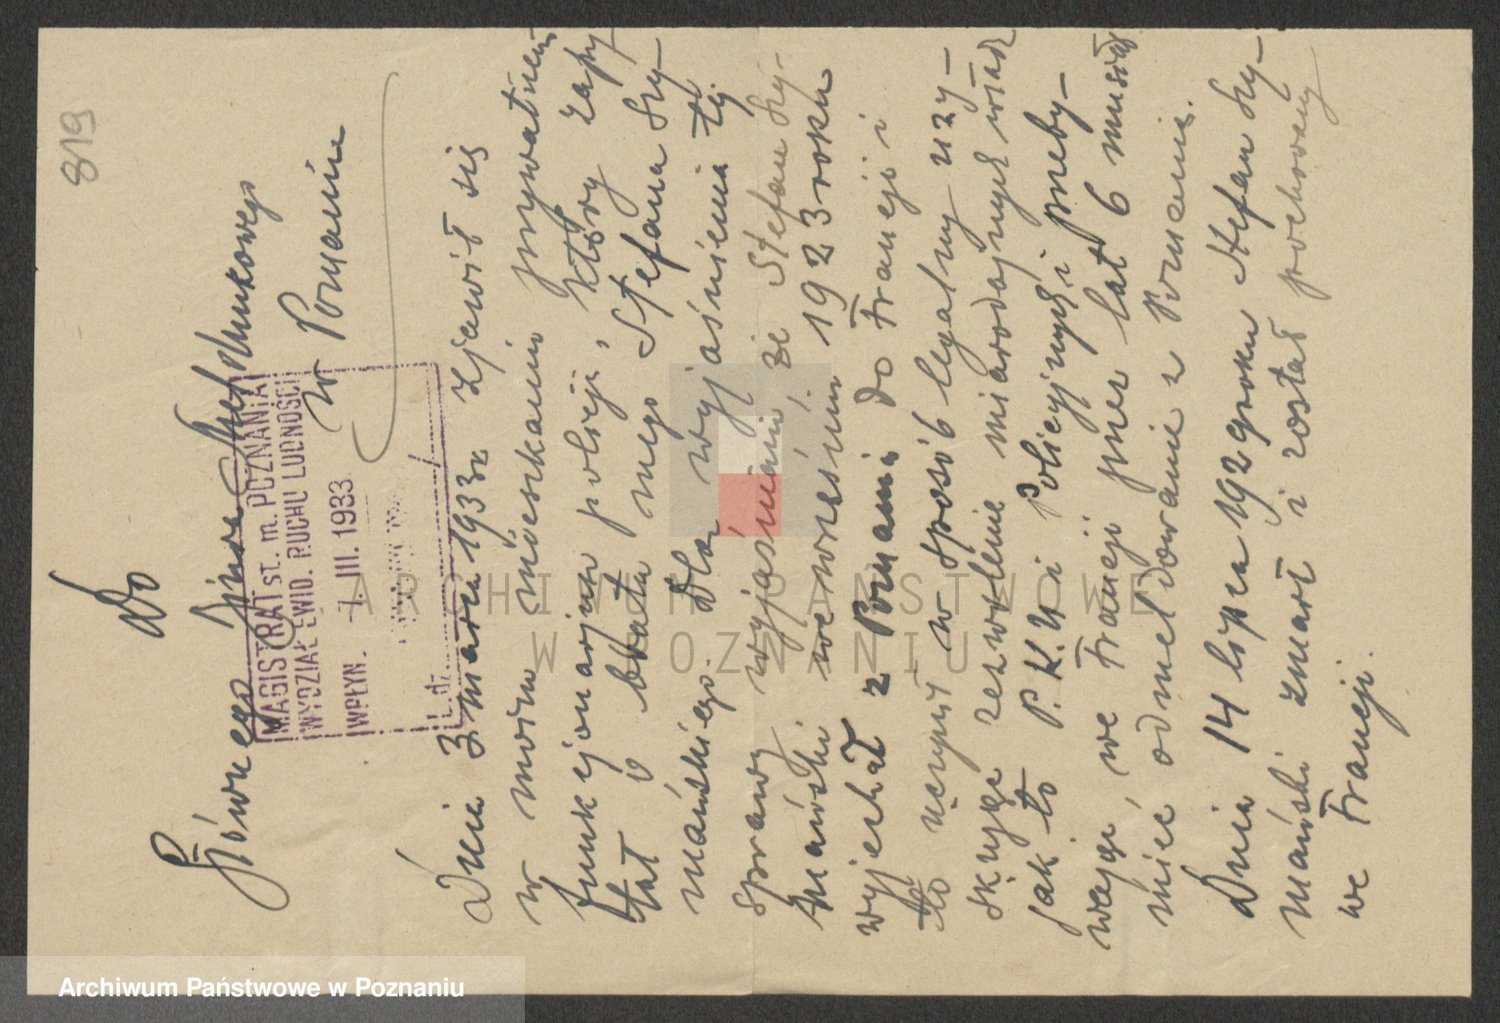 819
Do
Głównego Biura Meldunkowego
w Poznaniu
MAGISTRAT st. m. POZNANIA
WYDZIAŁ EWID. RUCHU LUDNOŚCI
WPŁYN. - 7. III. 1933
L. d.
Dnia 3 marca 1933r zjawił się
w moim mieszkaniu prywatnem
funkcjonarjusz policji, który zapy
tał o brata mego Stefana Szy-
mańskiego. Dla wyjaśnienia tej
sprawy wyjaśniam, że Stefan Szy-
mański we wrześniu 1923 roku
wyjechał z Poznania do Francji i
to uczynił w sposób legalny uzy-
skując zezwolenie miarodajnych władz
jak to P.K.U i Policyjnych i przeby-
wając we Francji przez lat 6 musiał
mieć odmeldowanie z Poznania.
Dnia 14 lipca 1929 roku Stefan Szy-
mański zmarł i został pochowany
we Francji.
ARCHIWUM PAŃSTWOWE
W POZNANIU
Archiwum Państwowe w Poznaniu